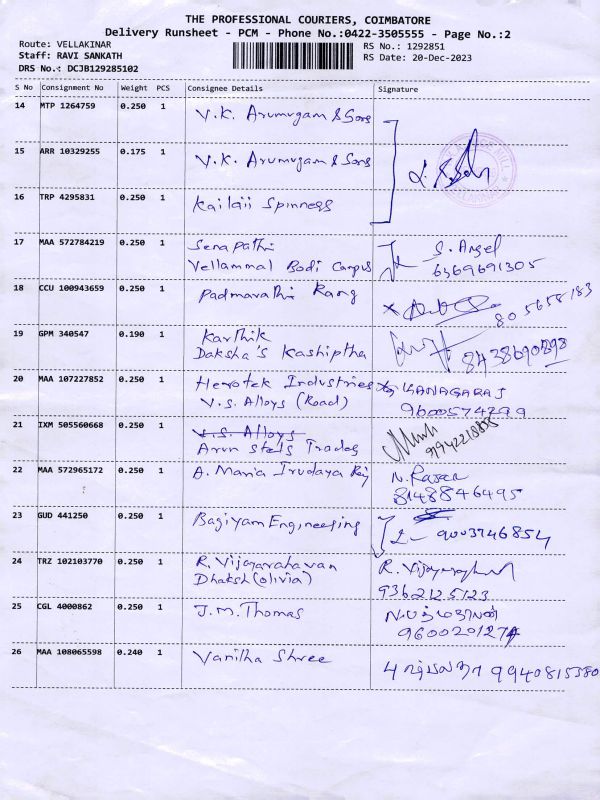 THE PROFESSIONAL COURIERS, COIMBATORE
Delivery Runsheet - PCM - Phone No.:0422-3505555 - Page No.:2
Route: VELLAKINAR
RS No.: 1292851
Staff: RAVI SANKATH
RS Date: 20-Dec-2023
DRS No.: DCJB129285102
S No Consignment No Weight PCS Consignee Details Signature
14 MTP 1264759 0.250 1 V.K. Arumugam & Sons
15 ARR 10329255 0.175 1 V.K. Arumugam & Sons
16 TRP 4295831 0.250 1 Kailaii Spinness
17 MAA 572784219 0.250 1 Senapathi S. Angel
Vellammal Bodi Campus 6369691305
18 CCU 100943659 0.250 1 Padmavathi
805658183
19 GPM 340547 0.190 1 Karthik
Daksha's Kashiptha
20 MAA 107227852 0.250 1 Herotek Industries KANAGARAJ
V.S. Alloys (Road) 9600574299
21 IXM 505560668 0.250 1 V.S. Alloys
Arun
22 MAA 572965172 0.250 1 A. Maria Irudaya Raj
8148846495
23 GUD 441250 0.250 1 Bagiyam Engineering 9003746854
24 TRZ 102103770 0.250 1 R. Vijayaraghavan
Dhaksh (Olivia) 9362125123
25 CGL 4000862 0.250 1 J.M. Thomas
9600201274
26 MAA 108065598 0.240 1 Vanitha Shree 9940815380